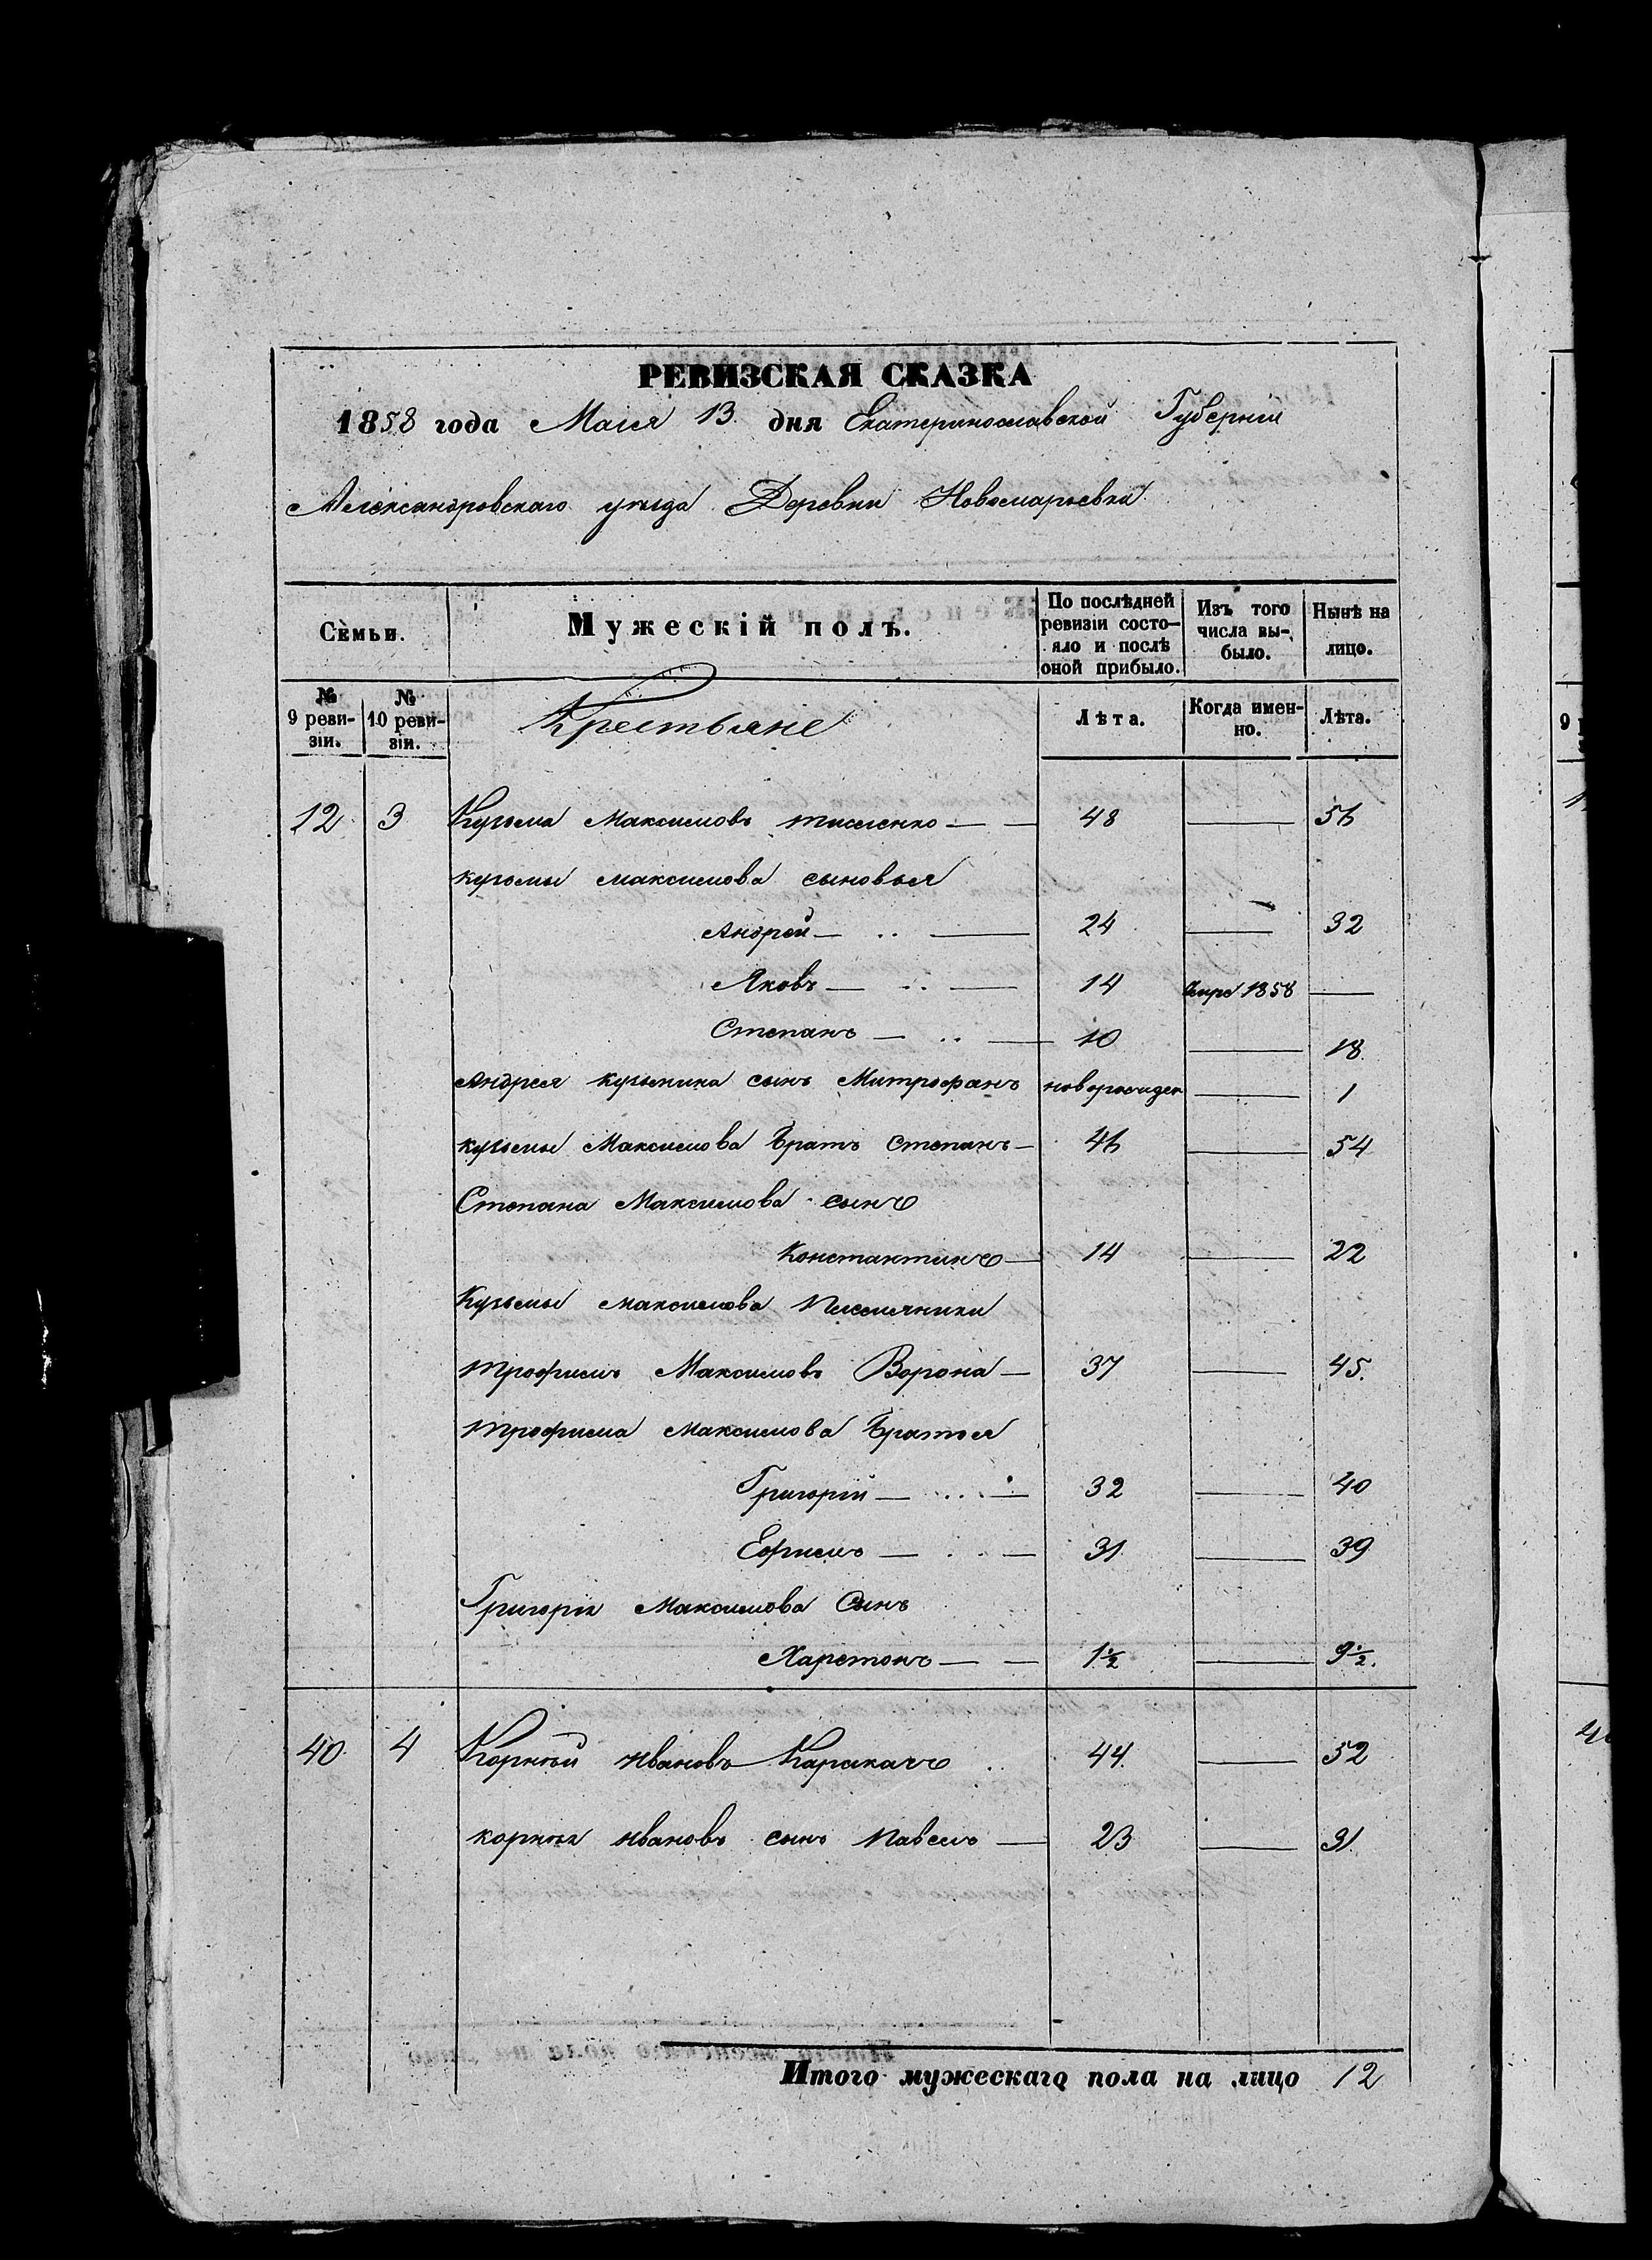 РЕВИЗСКАЯ СКАЗКА
1858 года Маія 13 дня Екатеринославской Губерніи
Александровскаго уѣзда Деревни Новомарьевки
Сѐмьи.
Мужескій полъ.
По послѣдней ревизіи состо- яло и послѣ оной прибыло.
Изъ того числа вы- было.
Нынѣ на лицо.
№ 9 реви- зіи.
№ 10 реви- зіи.
Крестьяне
Лѣта.
Когда имен- но.
Лѣта.
12 3 Кузьма Максимовъ — — 48 — 56
кузьмы максимова сыновья
Андрей — .. — 24 — 32
Яковъ — .. — 14 1858 —
Степанъ — .. — 10 — 18
Андрея кузьмина сынъ Митрофанъ новорожден — 1
кузьмы Максимова братъ степанъ — 46 — 54
Степана Максимова сынъ
Константинъ — 14 — 22
Кузьмы максимова племянники
трофимъ Максимовъ Ворона — 37 — 45.
трофима максимова братья
Григорій — ... — 32 — 40
Ефимъ — .. — 31 — 39
Григорія Максимова сынъ
Харетонъ — — 1½ — 9½.
40 4 Корнѣй Ивановъ .. 44. — 52
корнѣя ивановъ сынъ павелъ — 23 — 31.
Итого мужескаго пола на лицо 12